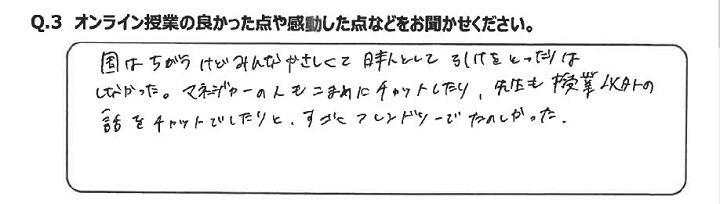 Q.3 オンライン授業の良かった点や感動した点などをお聞かせください。
国はちがうけどみんなやさしくて日本人としてひけをとったりは
しなかった。マネジャーの人もこまめにチャットしたり、先生も授業以外の
話をチャットでしたりと、すごくフレンドリーでたのしかった.